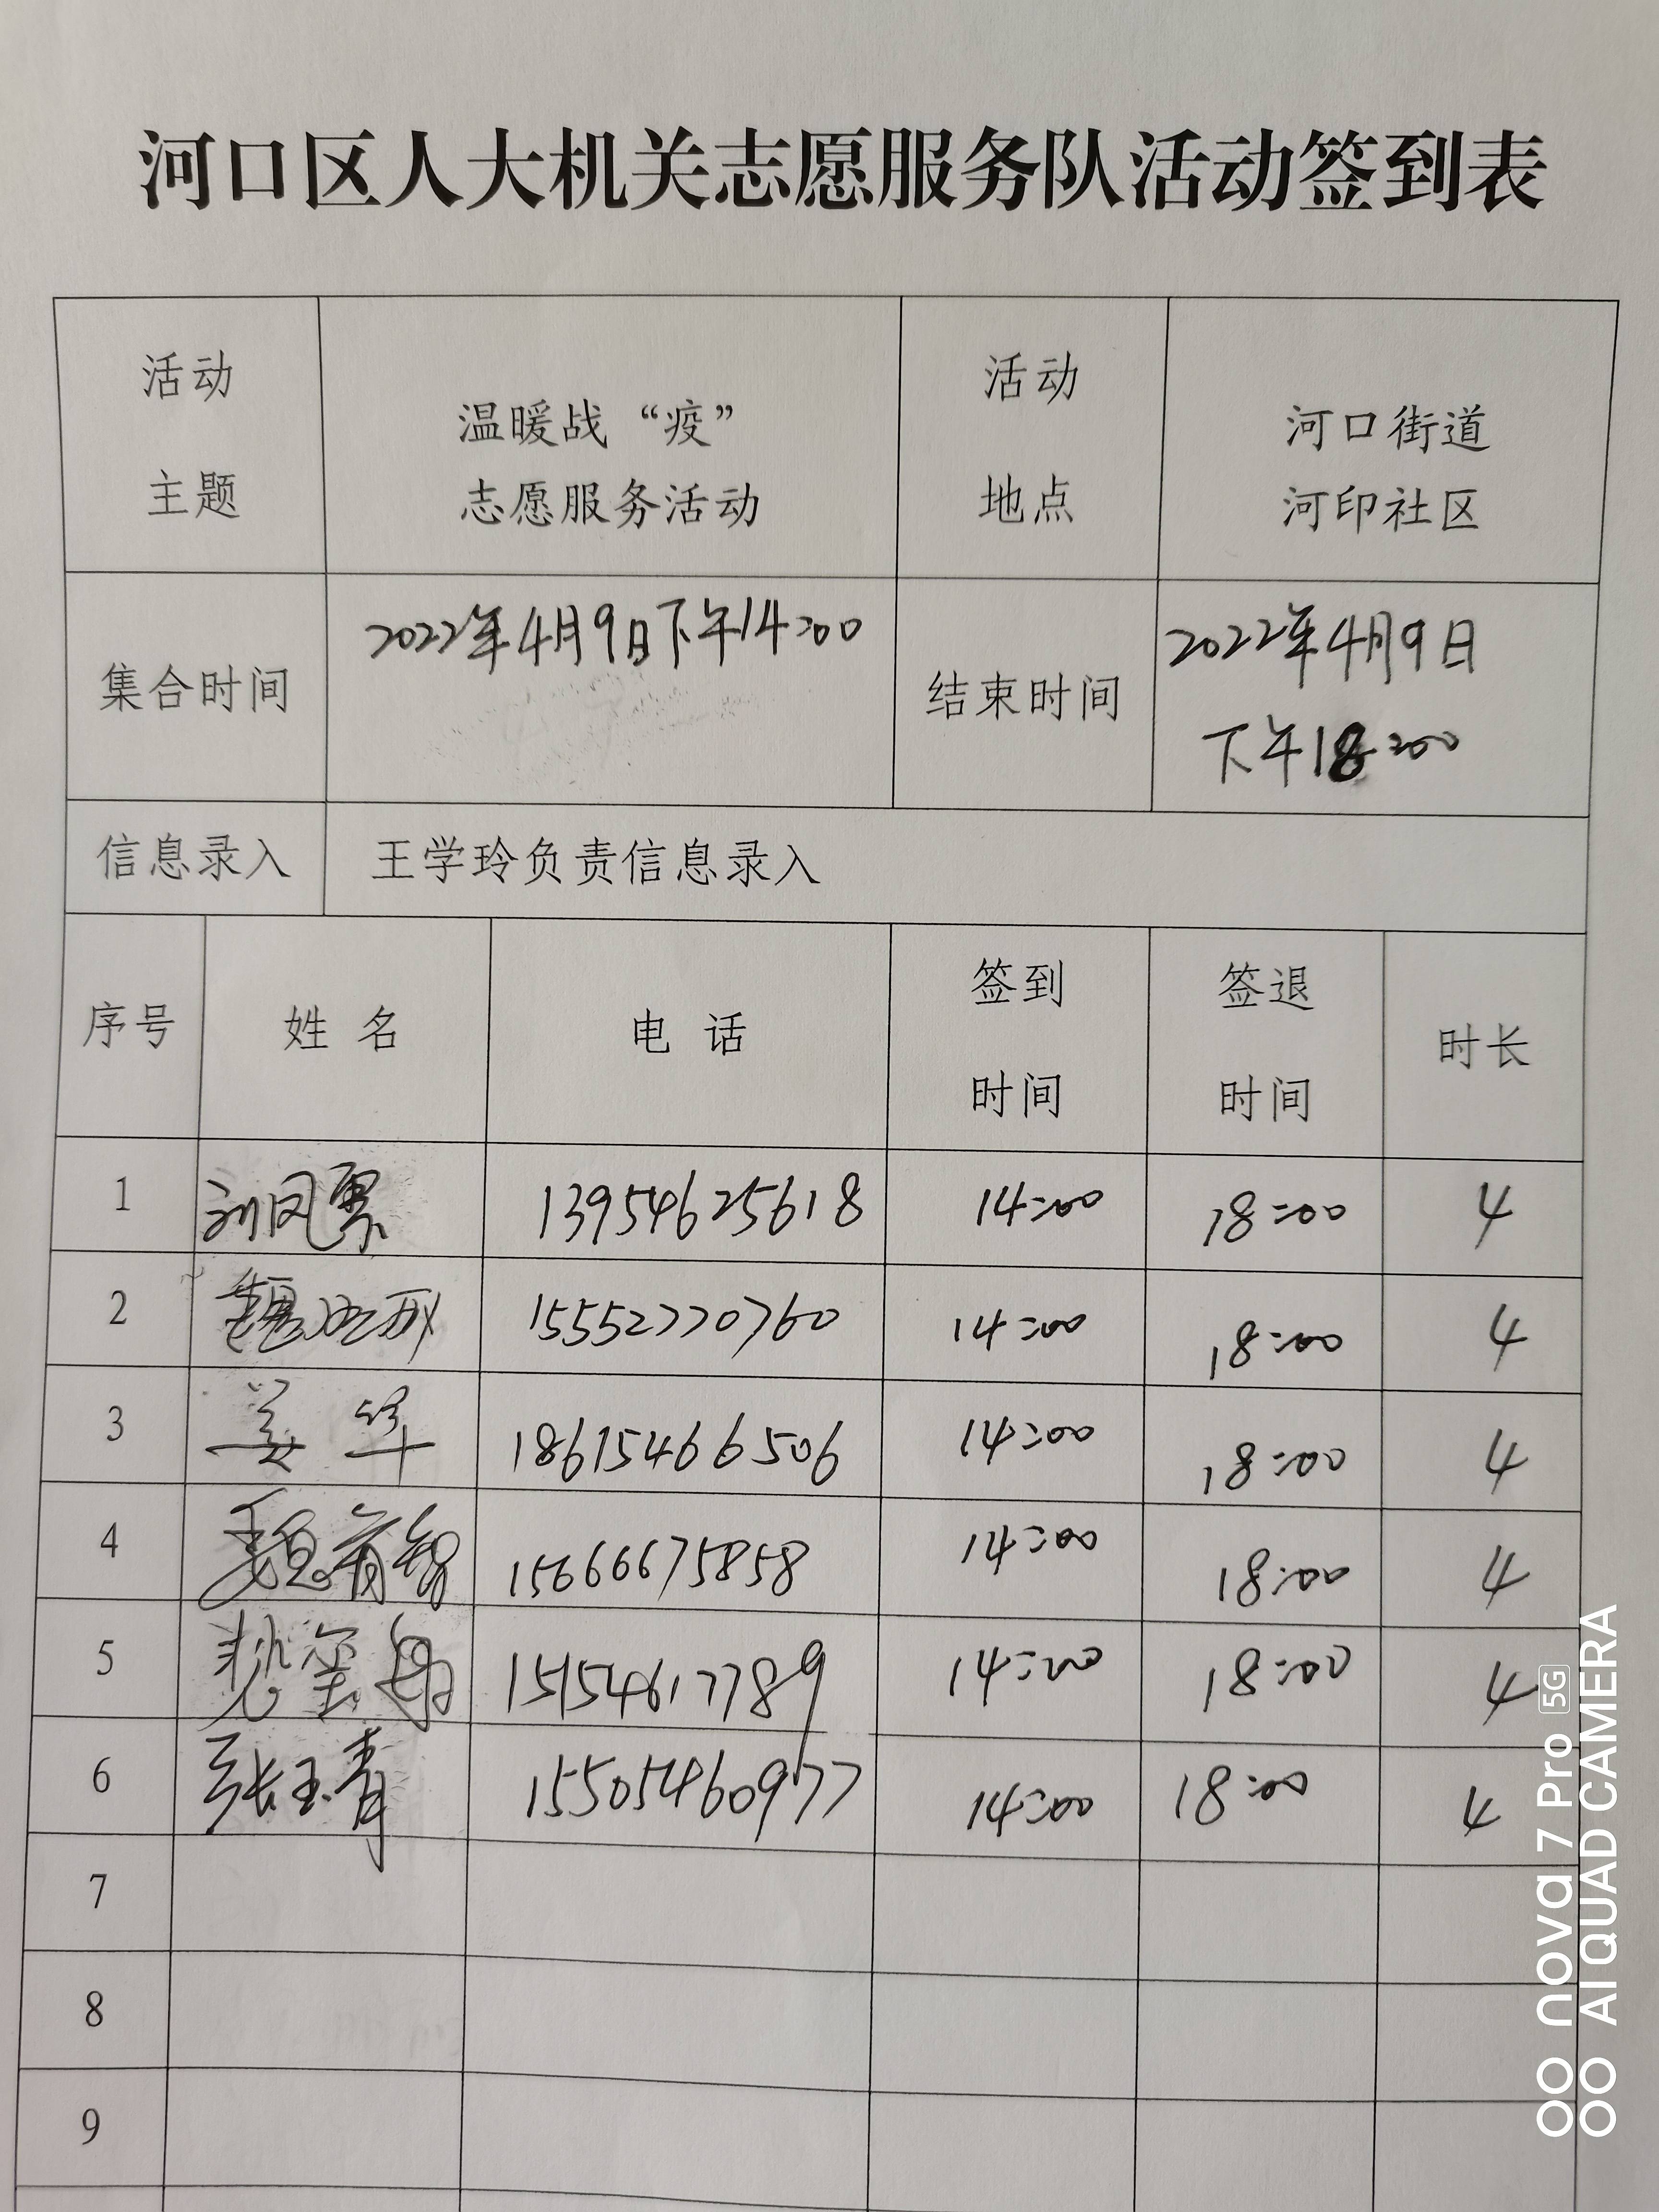 河口区人大机关志愿服务队活动签到表
活动
主题
温暖战“疫”
志愿服务活动
活动
地点
河口街道
河印社区
集合时间
2022年4月9日下午14:00
结束时间
2022年4月9日
下午18:00
信息录入
王学玲负责信息录入
序号 姓名 电话 签到时间 签退时间 时长
1 刘凤 13954625618 14:00 18:00 4
2 魏 15552770760 14:00 18:00 4
3 姜华 18615466506 14:00 18:00 4
4 魏 15666675858 14:00 18:00 4
5 15154617789 14:00 18:00 4
6 张玉青 15505460977 14:00 18:00 4
7
8
9
nova 7 Pro 5G
AI QUAD CAMERA